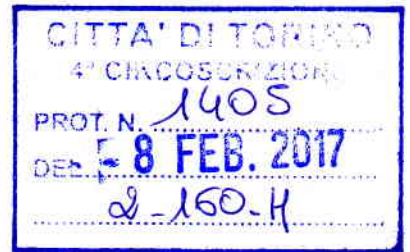 CITTA' DI TORINO
4ª CIRCOSCRIZIONE
PROT. N. 1405
DEL - 8 FEB. 2017
2-160-H